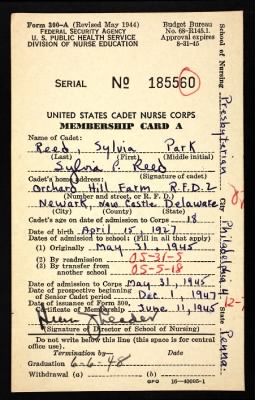 Form 300-A (Revised May 1944)
FEDERAL SECURITY AGENCY
U. S. PUBLIC HEALTH SERVICE
DIVISION OF NURSE EDUCATION
Budget Bureau
No. 68-R145.1.
Approval expires
8-31-45
SERIAL No 185560
UNITED STATES CADET NURSE CORPS
MEMBERSHIP CARD A
Name of Cadet:
Reed, Sylvia Park
(Last) (First) (Middle initial)
Sylvia P. Reed
(Signature of cadet)
Cadet's home address:
Orchard Hill Farm R.F.D.2
(Number and street, or R. F. D.)
Newark, New Castle, Delaware
(City) (County) (State)
Cadet's age on date of admission to Corps 18
Date of birth April 15, 1927
Dates of admission to school: (Fill in all that apply)
(1) Originally May 31, 1945
(2) By readmission 05-31-5
(3) By transfer from another school 05-5-18
Date of admission to Corps May 31, 1945
Date of prospective beginning
of Senior Cadet period Dec. 1, 1947
Date of issuance of Form 300,
Certificate of Membership June 11, 1945
(Signature of Director of School of Nursing)
Do not write below this line (this space is for central
office use).
Termination by Date
Graduation 6-6-48
Withdrawal (a) (b)
GPO 16-40095-1
School of Nursing Presbyterian City Philadelphia State Penna.
12-